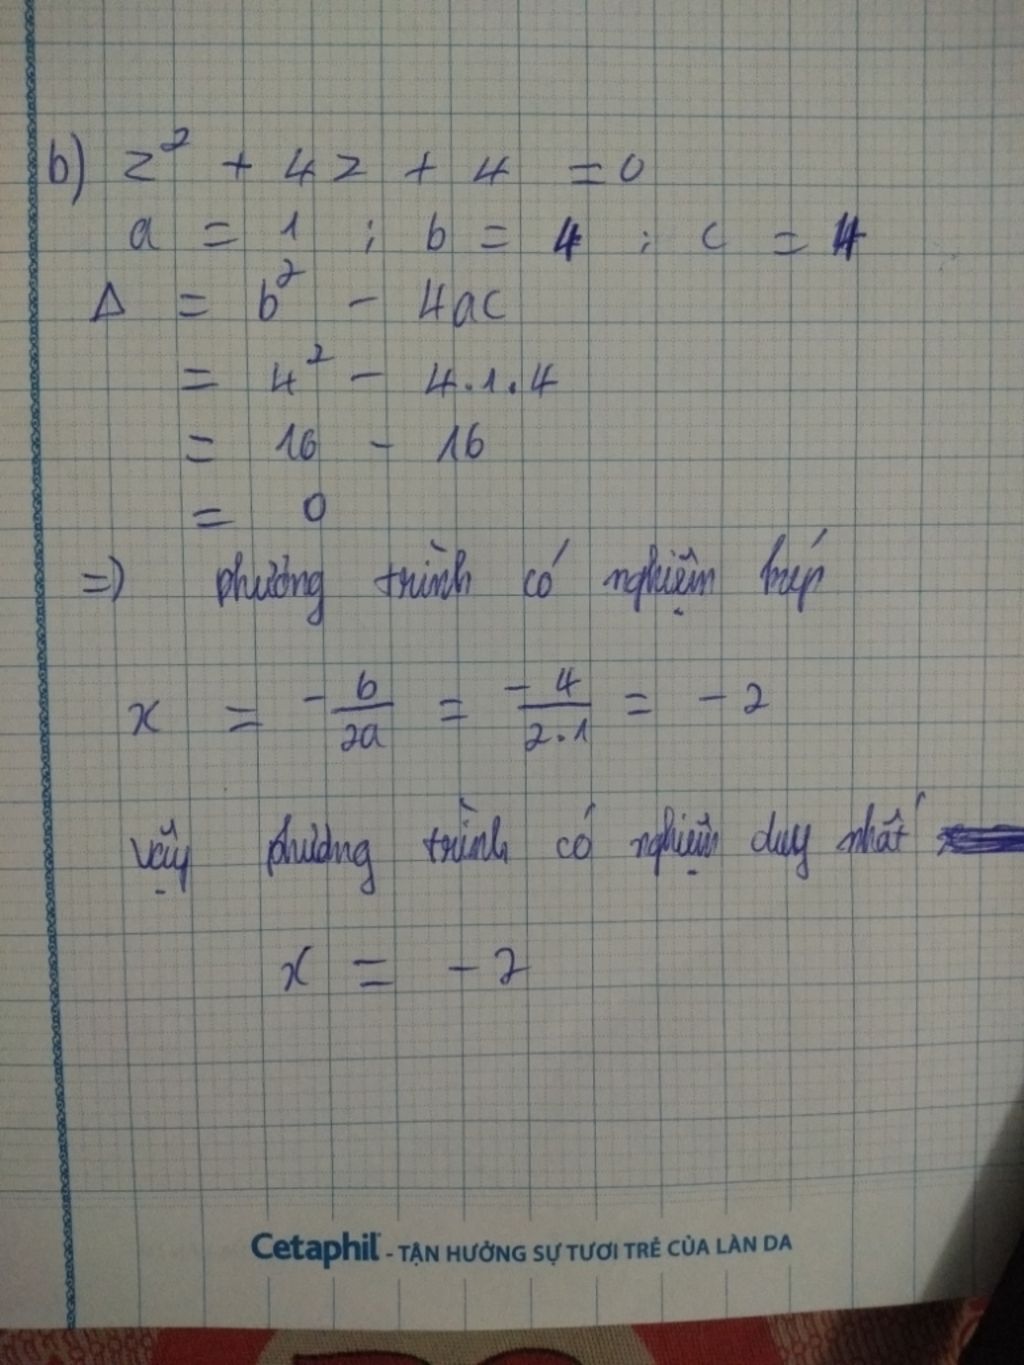 b) z² + 4z + 4 = 0
a = 1 ; b = 4 ; c = 4
Δ = b² - 4ac
= 4² - 4.1.4
= 16 - 16
= 0
=) phương trình có nghiệm kép
x = -b/2a = -4/2.1 = -2
vậy phương trình có nghiệm duy nhất
x = -2
Cetaphil - TẬN HƯỞNG SỰ TƯƠI TRẺ CỦA LÀN DA